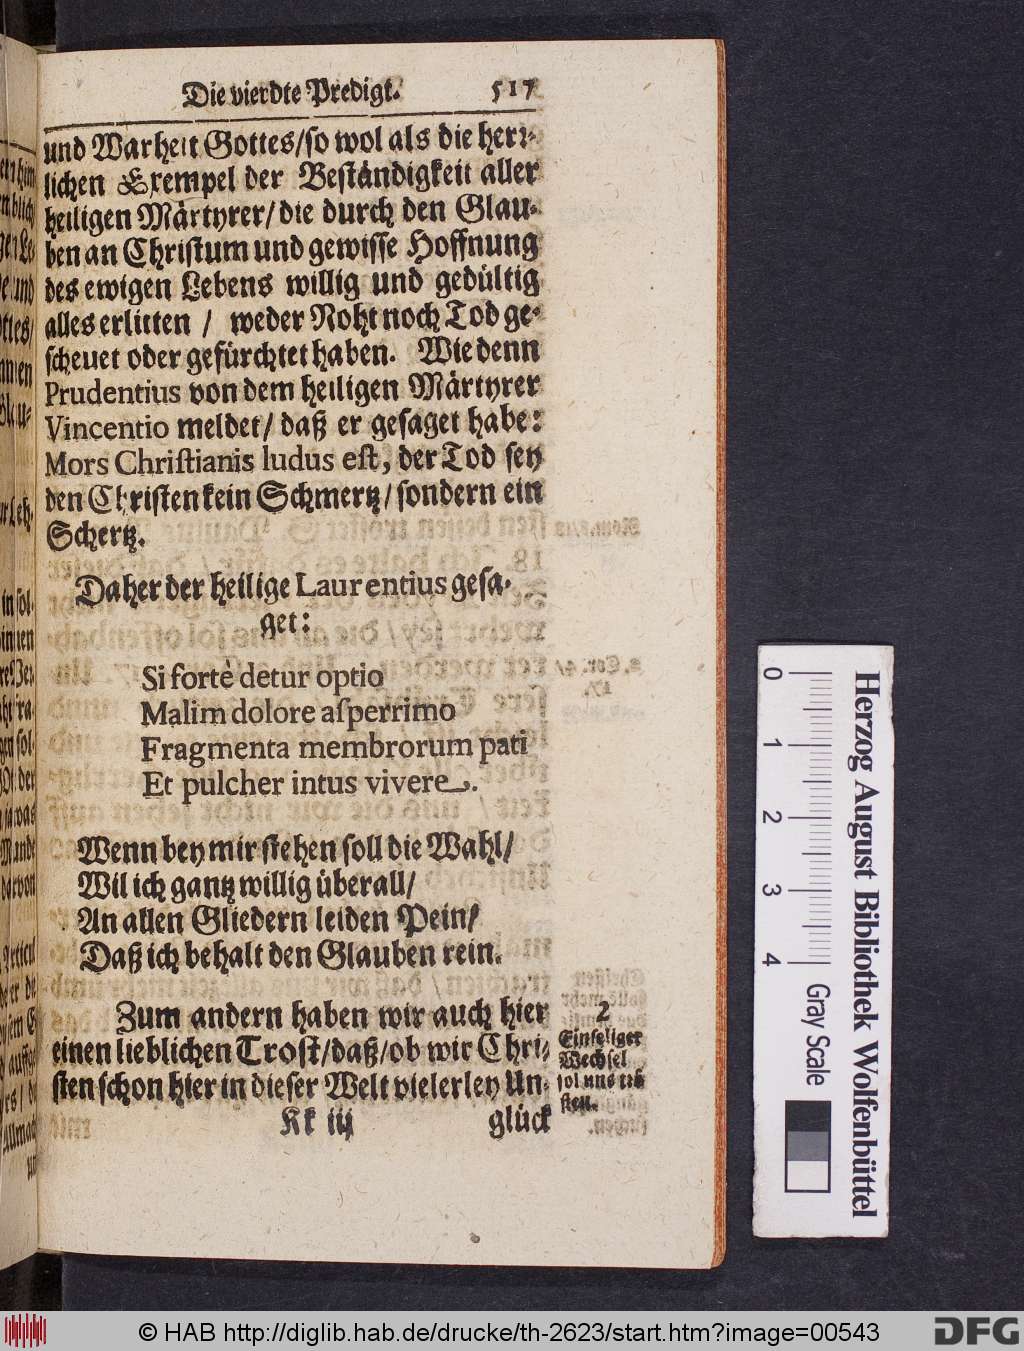 Die vierdte Predigt. 517
und Warheit Gottes/so wol als die herr-
lichen Exempel der Beständigkeit aller
heiligen Märtyrer/die durch den Glau-
ben an Christum und gewisse Hoffnung
des ewigen Lebens willig und gedültig
alles erlitten / weder Noht noch Tod ge-
scheuet oder gefürchtet haben. Wie denn
Prudentius von dem heiligen Märtyrer
Vincentio meldet/ daß er gesaget habe:
Mors Chriſtianis ludus eſt, der Tod sey
den Christen kein Schmertz/sondern ein
Schertz.
Daher der heilige Laurentius gesa-
get:
Si fortè detur optio
Malim dolore aſperrimo
Fragmenta membrorum pati
Et pulcher intus vivere.
Wenn bey mir stehen soll die Wahl/
Wil ich gantz willig überall/
An allen Gliedern leiden Pein/
Daß ich behalt den Glauben rein.
Zum andern haben wir auch hier
einen lieblichen Trost/daß/ob wir Chri-
sten schon hier in dieser Welt vielerley Un-
2
Ein seliger
Wechsel
sol uns trö
sten.
Kk iij glück
0 1 2 3 4
Gray Scale
Herzog August Bibliothek Wolfenbüttel
© HAB http://diglib.hab.de/drucke/th-2623/start.htm?image=00543
DFG